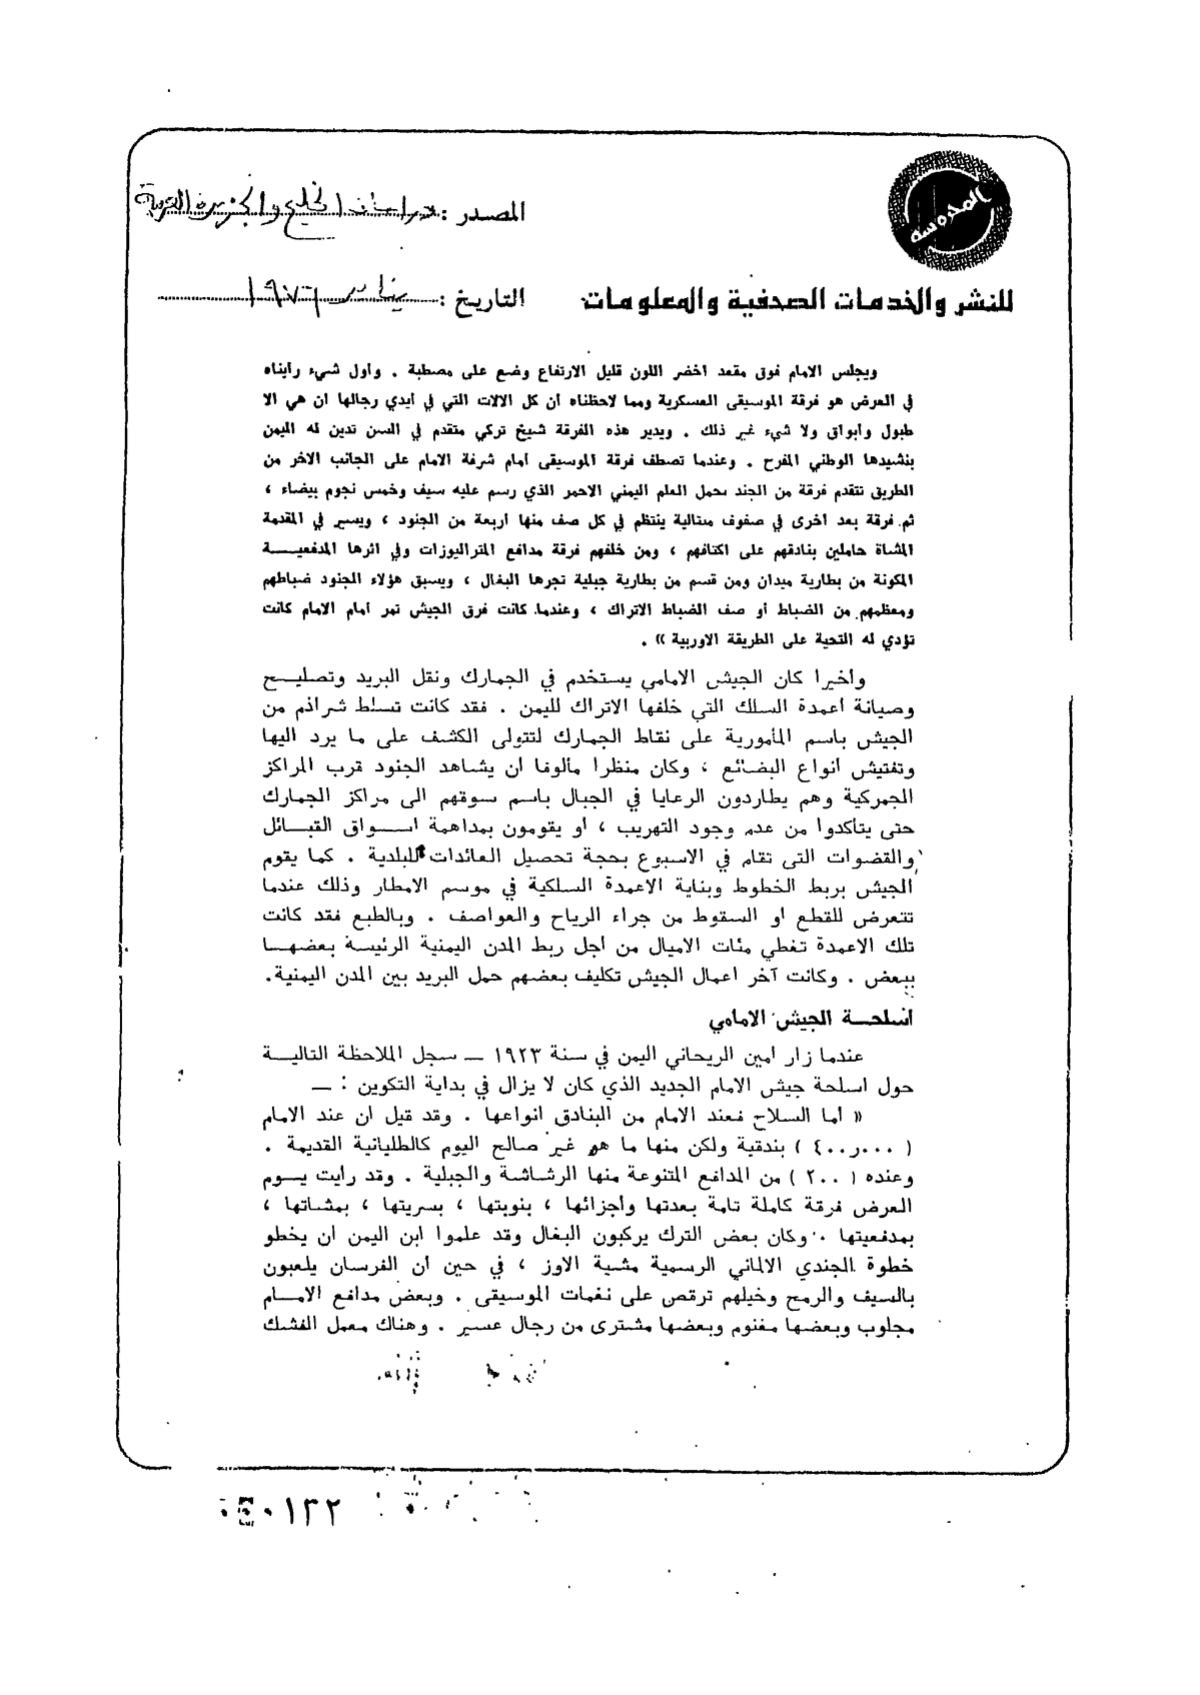 المحروسة
المصدر : دراسات الخليج والجزيرة العربية
للنشر والخدمات الصحفية والمعلومات
التاريخ : يناير ١٩٧٦
ويجلس الامام فوق مقعد اخضر اللون قليل الارتفاع وضع على مصطبة . واول شيء رايناه
في العرض هو فرقة الموسيقى العسكرية ومما لاحظناه أن كل الالات التي في ايدي رجالها ان هي الا
طبول وابواق ولا شيء غير ذلك . ويدير هذه الفرقة شيخ تركي متقدم في السن تدين له اليمن
بنشيدها الوطني المفرح . وعندما تصطف فرقة الموسيقى امام شرفة الامام على الجانب الاخر من
الطريق تتقدم فرقة من الجند بحمل العلم اليمني الاحمر الذي رسم عليه سيف وخمس نجوم بيضاء ،
ثم فرقة بعد اخرى في صفوف متتالية ينتظم في كل صف منها اربعة من الجنود ، ويسير في المقدمة
المشاة حاملين بنادقهم على اكتافهم ، ومن خلفهم فرقة مدافع المتراليوزات وفي اثرها المدفعيـــة
المكونة من بطارية ميدان ومن قسم من بطارية جبلية تجرها البغال ، ويسبق هؤلاء الجنود ضباطهم
ومعظمهم من الضباط أو صف الضباط الاتراك ، وعندما كانت فرق الجيش تمر امام الامام كانت
تؤدي له التحية على الطريقة الاوربية » .
واخيرا كان الجيش الامامي يستخدم في الجمارك ونقل البريد وتصليـــح
وصيانة اعمدة السلك التي خلفها الاتراك لليمن . فقد كانت تسلط شراذم من
الجيش باسم المأمورية على نقاط الجمارك لتتولى الكشف على ما يرد اليها
وتفتيش انواع البضائع ، وكان منظرا مألوفا أن يشاهد الجنود قرب المراكز
الجمركية وهم يطاردون الرعايا في الجبال باسم سوقهم الى مراكز الجمارك
حتى يتأكدوا من عدم وجود التهريب ، أو يقومون بمداهمة اســواق القبـــائل
والقضوات التى تقام في الاسبوع بحجة تحصيل العائدات للبلدية . كما يقوم
الجيش بربط الخطوط وبناية الاعمدة السلكية في موسم الامطار وذلك عندما
تتعرض للقطع او السقوط من جراء الرياح والعواصف . وبالطبع فقد كانت
تلك الاعمدة تغطي مئات الاميال من اجل ربط المدن اليمنية الرئيسة بعضهــا
ببعض . وكانت آخر اعمال الجيش تكليف بعضهم حمل البريد بين المدن اليمنية.
اسلحــة الجيش الامامي
عندما زار امين الريحاني اليمن في سنة ١٩٢٣ ــ سجل الملاحظة التاليــة
حول اسلحة جيش الامام الجديد الذي كان لا يزال في بداية التكوين : ــ
« أما السلاح فعند الامام من البنادق انواعها . وقد قيل ان عند الامام
( ٤٠٠٫٠٠٠ ) بندقية ولكن منها ما هو غير صالح اليوم كالطليانية القديمة .
وعنده ( ٢٠٠ ) من المدافع المتنوعة منها الرشاشة والجبلية . وقد رايت يــوم
العرض فرقة كاملة تامة بعدتها وأجزائها ، بنوبتها ، بسريتها ، بمشاتها ،
بمدفعيتها . وكان بعض الترك يركبون البغال وقد علموا ابن اليمن ان يخطو
خطوة الجندي الالماني الرسمية مشية الاوز ، في حين ان الفرسان يلعبون
بالسيف والرمح وخيلهم ترقص على نغمات الموسيقى . وبعض مدافع الامــام
مجلوب وبعضها مغنوم وبعضها مشترى من رجال عسير . وهناك معمل الفشك
٠١٣٢